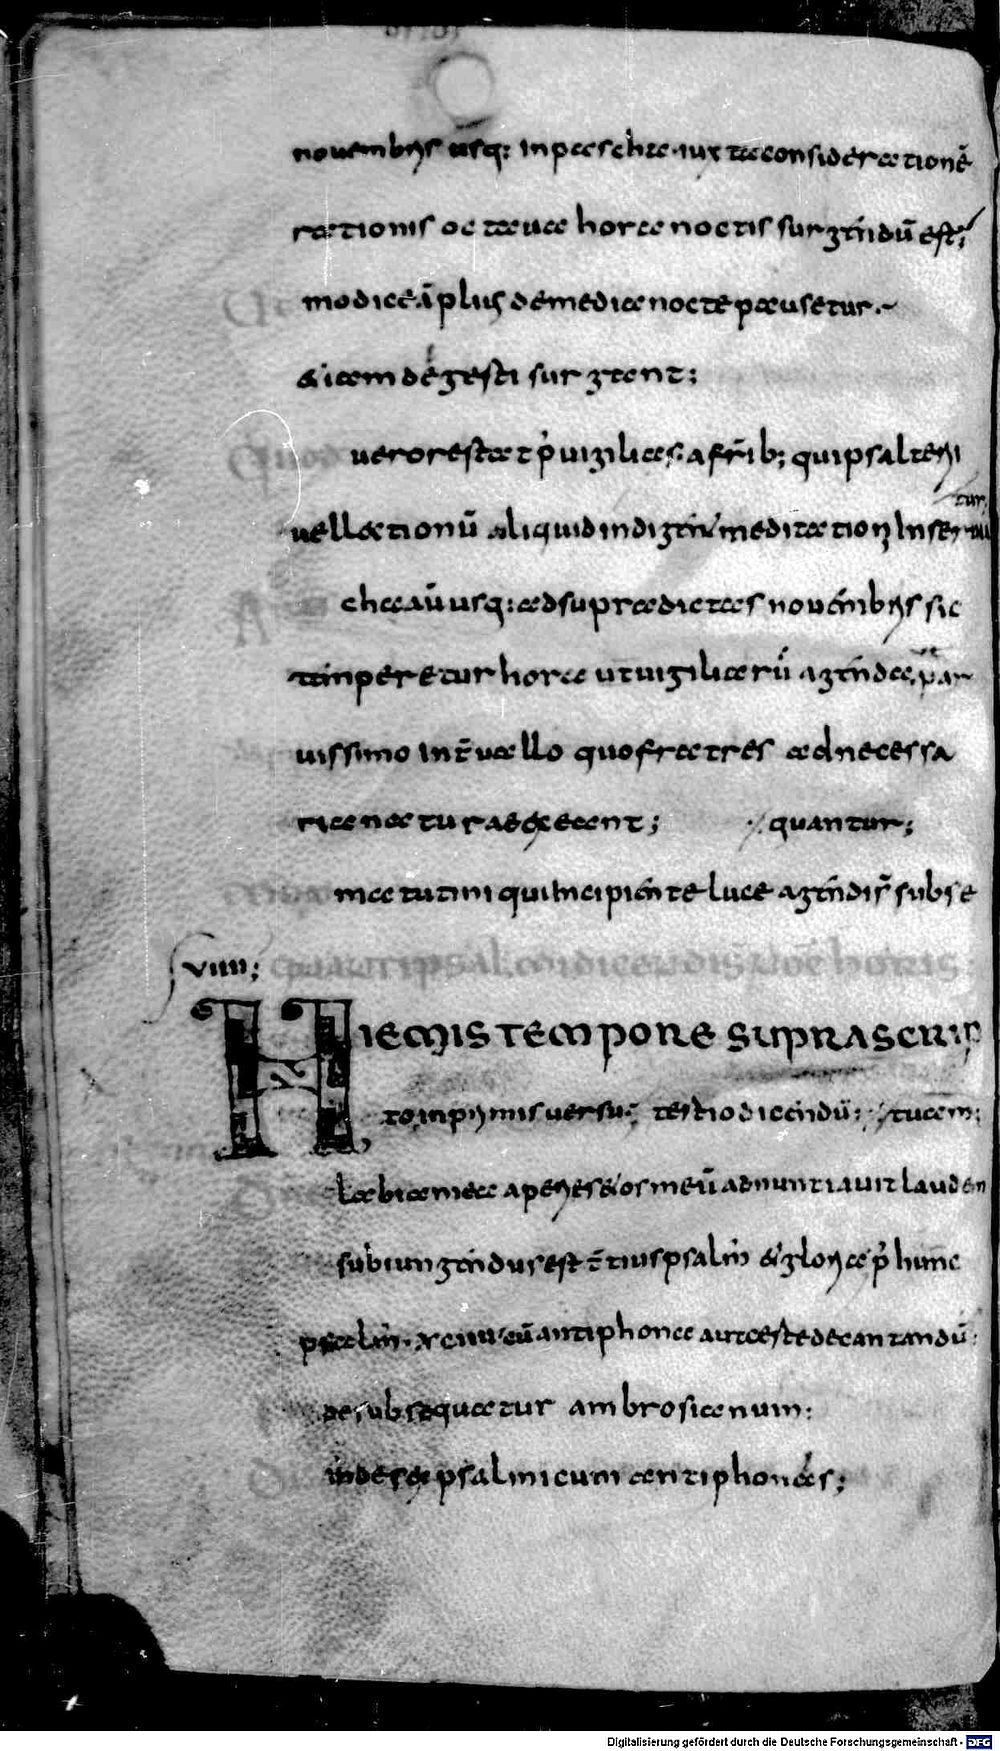 nouembris usq: in pascha iuxta consideratione͞
rationis octaua hora noctis surgendū est;
modice ā plus de media nocte pausetur.
& iam degesti surgant;
Quod uero restat ṗ uigilias a fr̄ib; qui psalterii
uel lectionū aliquid indigent meditationi Inseruiatur
A chaaū usq: ad supradictas nouembris sic
temperetur hora ut uigiliarū agendae, par
uissimo int̄uallo quo fratres ad necessa
ria naturae exeant; quantur;
matutini qui Incipiente luce agendi s̄ subse
VIIII; quanti psalmi dicendi s̄ noc̄ horis;
HIEMIS TEMPORE SUPRASCRIP
to inprimis uersu; tertio dicendū; tuam;
labia mea aperies & os meū adnuntiauit laudem
subiungendus est t̄tius psalm̄ & gloria ṗ hunc
psalm̄. xciiii cū antiphona aut certe decantandū;
de subsequatur ambrosianum;
inde sex psalmi cum antiphonas;
Digitalisierung gefördert durch die Deutsche Forschungsgemeinschaft - DFG